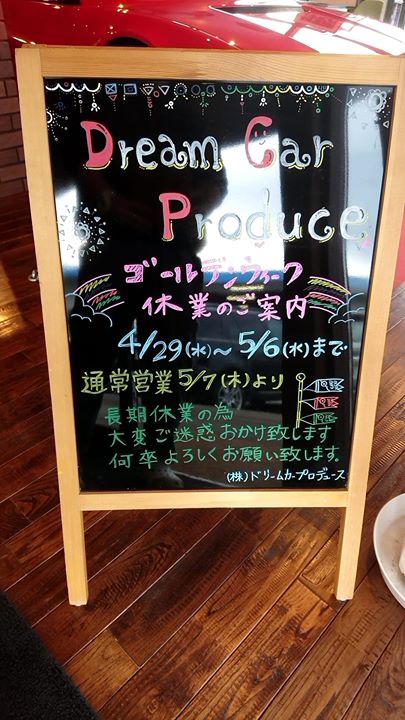 Dream Car
Produce
ゴールデンウィーク
休業のご案内
4/29(水)～5/6(水)まで
通常営業5/7(木)より
長期休業の為
大変ご迷惑おかけ致します
何卒よろしくお願い致します。
(株)ドリームカープロデュース